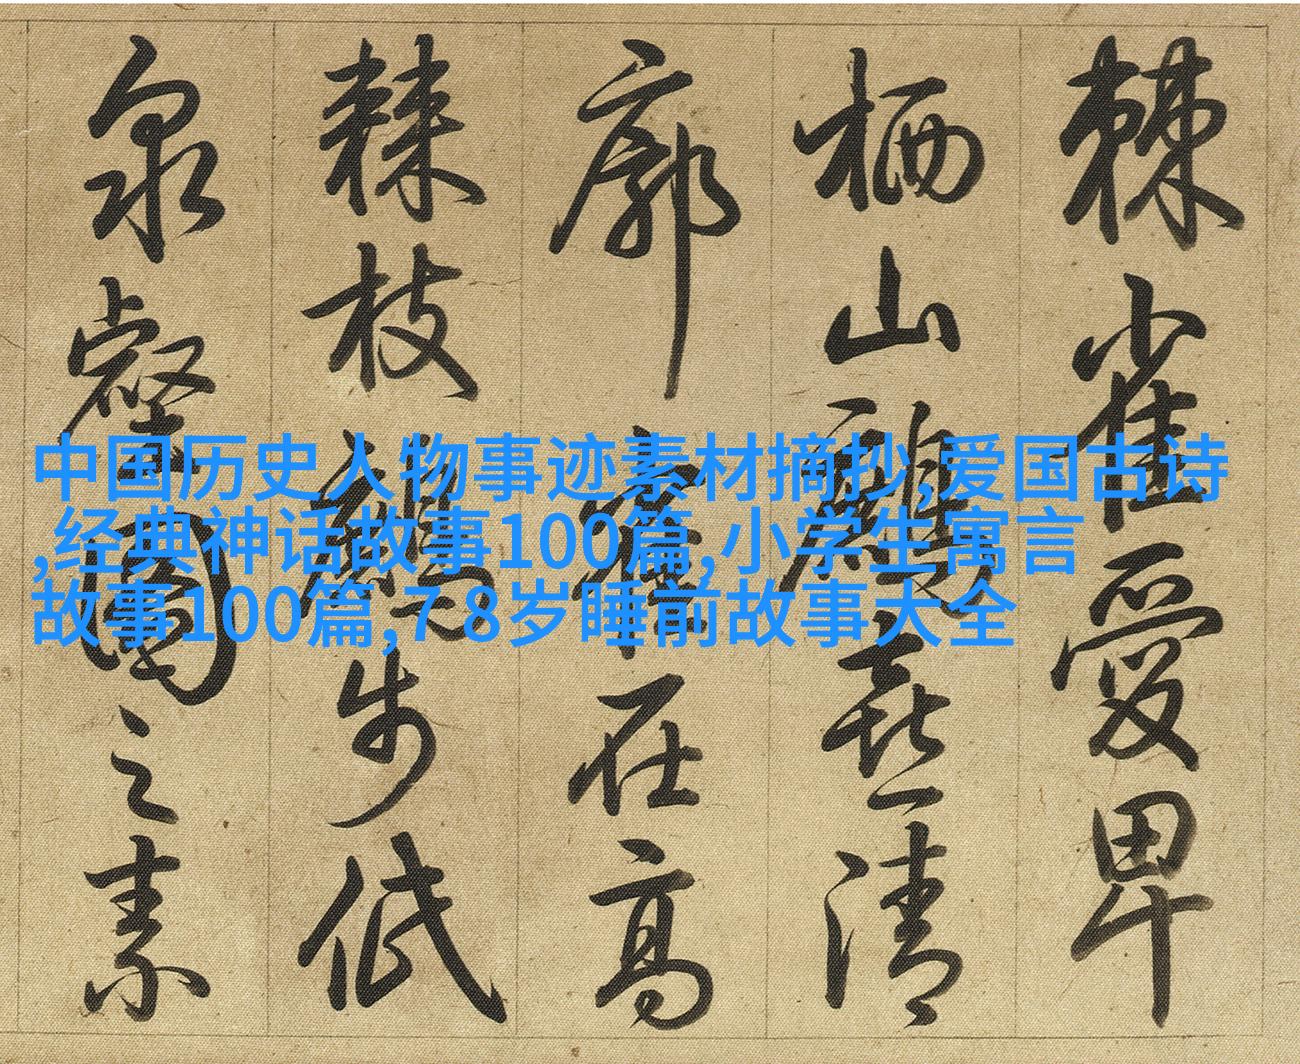 棘雀愛卑
栖山喜清
廓在高
棘枝步低
泉壑園之素
中国历史人物事迹素材摘抄,爱国古诗
,经典神话故事100篇,小学生寓言
故事100篇,7 8岁睡前故事大全